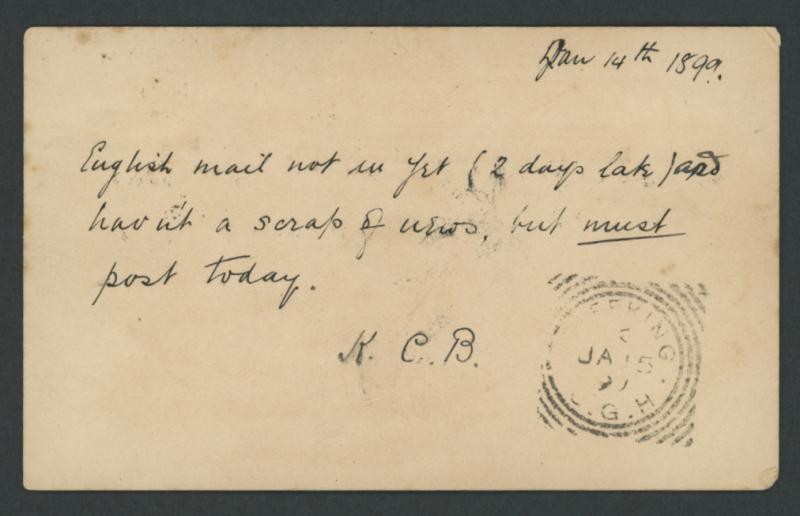 Jan 14th 1899.
English mail not in yet (2 days late) and
hav'nt a scrap of news, but must
post today.
K. C. B.
JA 15
.G.H